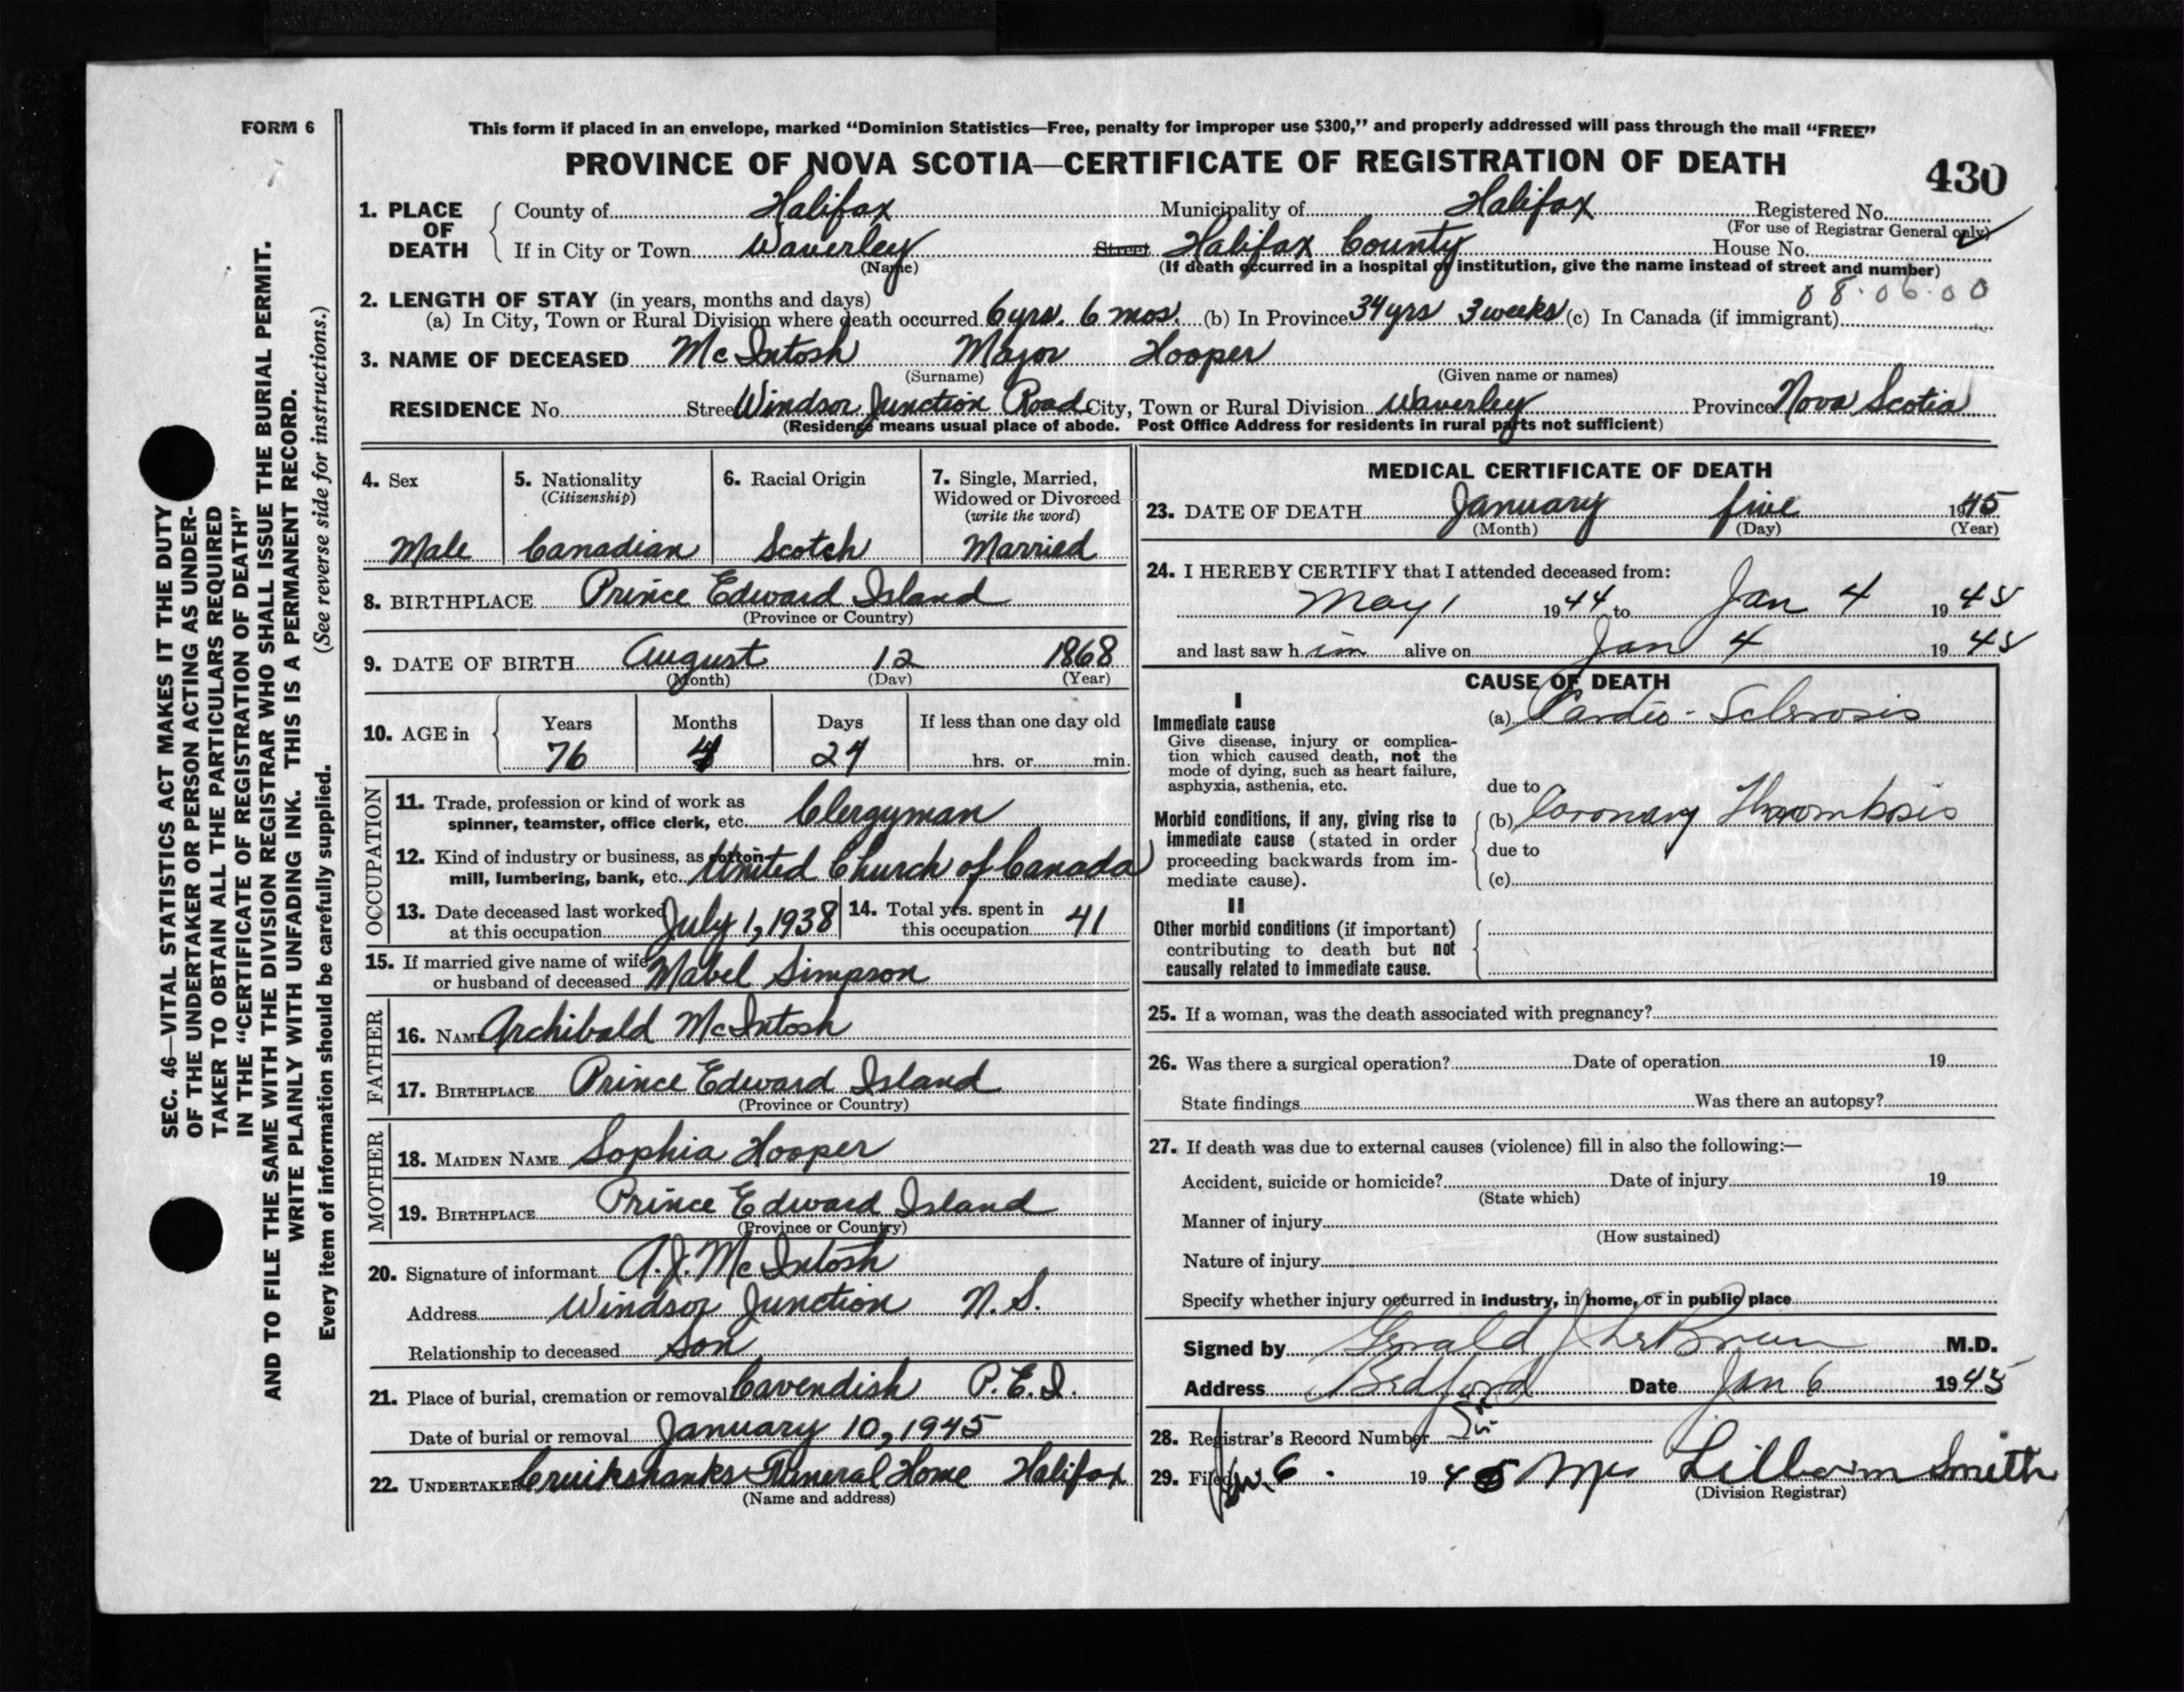 FORM 6
This form if placed in an envelope, marked “Dominion Statistics—Free, penalty for improper use $300,” and properly addressed will pass through the mail “FREE”
PROVINCE OF NOVA SCOTIA—CERTIFICATE OF REGISTRATION OF DEATH
430
1. PLACE OF DEATH
County of Halifax Municipality of Halifax Registered No.
(For use of Registrar General only)
If in City or Town Waverley Street Halifax County House No.
(Name) (If death occurred in a hospital or institution, give the name instead of street and number)
08.06.00
2. LENGTH OF STAY (in years, months and days)
(a) In City, Town or Rural Division where death occurred 6 yrs. 6 mos. (b) In Province 34 yrs 3 weeks (c) In Canada (if immigrant)
3. NAME OF DECEASED McIntosh Major Hooper
(Surname) (Given name or names)
RESIDENCE No. Street Windsor Junction Road City, Town or Rural Division Waverley Province Nova Scotia
(Residence means usual place of abode. Post Office Address for residents in rural parts not sufficient)
4. Sex
Male
5. Nationality
(Citizenship)
Canadian
6. Racial Origin
Scotch
7. Single, Married,
Widowed or Divorced
(write the word)
Married
8. BIRTHPLACE Prince Edward Island
(Province or Country)
9. DATE OF BIRTH August 12 1868
(Month) (Day) (Year)
10. AGE in
Years Months Days If less than one day old
76 4 24 hrs. or min.
OCCUPATION
11. Trade, profession or kind of work as
spinner, teamster, office clerk, etc. Clergyman
12. Kind of industry or business, as cotton-
mill, lumbering, bank, etc. United Church of Canada
13. Date deceased last worked
at this occupation July 1, 1938
14. Total yrs. spent in
this occupation 41
15. If married give name of wife
or husband of deceased Mabel Simpson
FATHER
16. NAME Archibald McIntosh
17. BIRTHPLACE Prince Edward Island
(Province or Country)
MOTHER
18. MAIDEN NAME Sophia Hooper
19. BIRTHPLACE Prince Edward Island
(Province or Country)
20. Signature of informant A.J. McIntosh
Address Windsor Junction N.S.
Relationship to deceased Son
21. Place of burial, cremation or removal Cavendish P.E.I.
Date of burial or removal January 10, 1945
22. UNDERTAKER Cruikshanks Funeral Home Halifax
(Name and address)
MEDICAL CERTIFICATE OF DEATH
23. DATE OF DEATH January five 1945
(Month) (Day) (Year)
24. I HEREBY CERTIFY that I attended deceased from:
May 1 1944 to Jan 4 1945
and last saw him alive on Jan 4 1945
CAUSE OF DEATH
I
Immediate cause
Give disease, injury or complica-
tion which caused death, not the
mode of dying, such as heart failure,
asphyxia, asthenia, etc.
(a) Cardio-Sclerosis
due to
Morbid conditions, if any, giving rise to
immediate cause (stated in order
proceeding backwards from im-
mediate cause).
(b) Coronary Thrombosis
due to
(c)
II
Other morbid conditions (if important)
contributing to death but not
causally related to immediate cause.
25. If a woman, was the death associated with pregnancy?
26. Was there a surgical operation? Date of operation 19
State findings Was there an autopsy?
27. If death was due to external causes (violence) fill in also the following:—
Accident, suicide or homicide? Date of injury 19
(State which)
Manner of injury
(How sustained)
Nature of injury
Specify whether injury occurred in industry, in home, or in public place
Signed by Gerald J LeBrun M.D.
Address Bedford Date Jan 6 1945
28. Registrar's Record Number
29. Filed Jan 6. 1945 Mrs Lilliam Smith
(Division Registrar)
SEC. 46—VITAL STATISTICS ACT MAKES IT THE DUTY
OF THE UNDERTAKER OR PERSON ACTING AS UNDER-
TAKER TO OBTAIN ALL THE PARTICULARS REQUIRED
IN THE “CERTIFICATE OF REGISTRATION OF DEATH”
AND TO FILE THE SAME WITH THE DIVISION REGISTRAR WHO SHALL ISSUE THE BURIAL PERMIT.
WRITE PLAINLY WITH UNFADING INK. THIS IS A PERMANENT RECORD.
Every item of information should be carefully supplied. (See reverse side for instructions.)